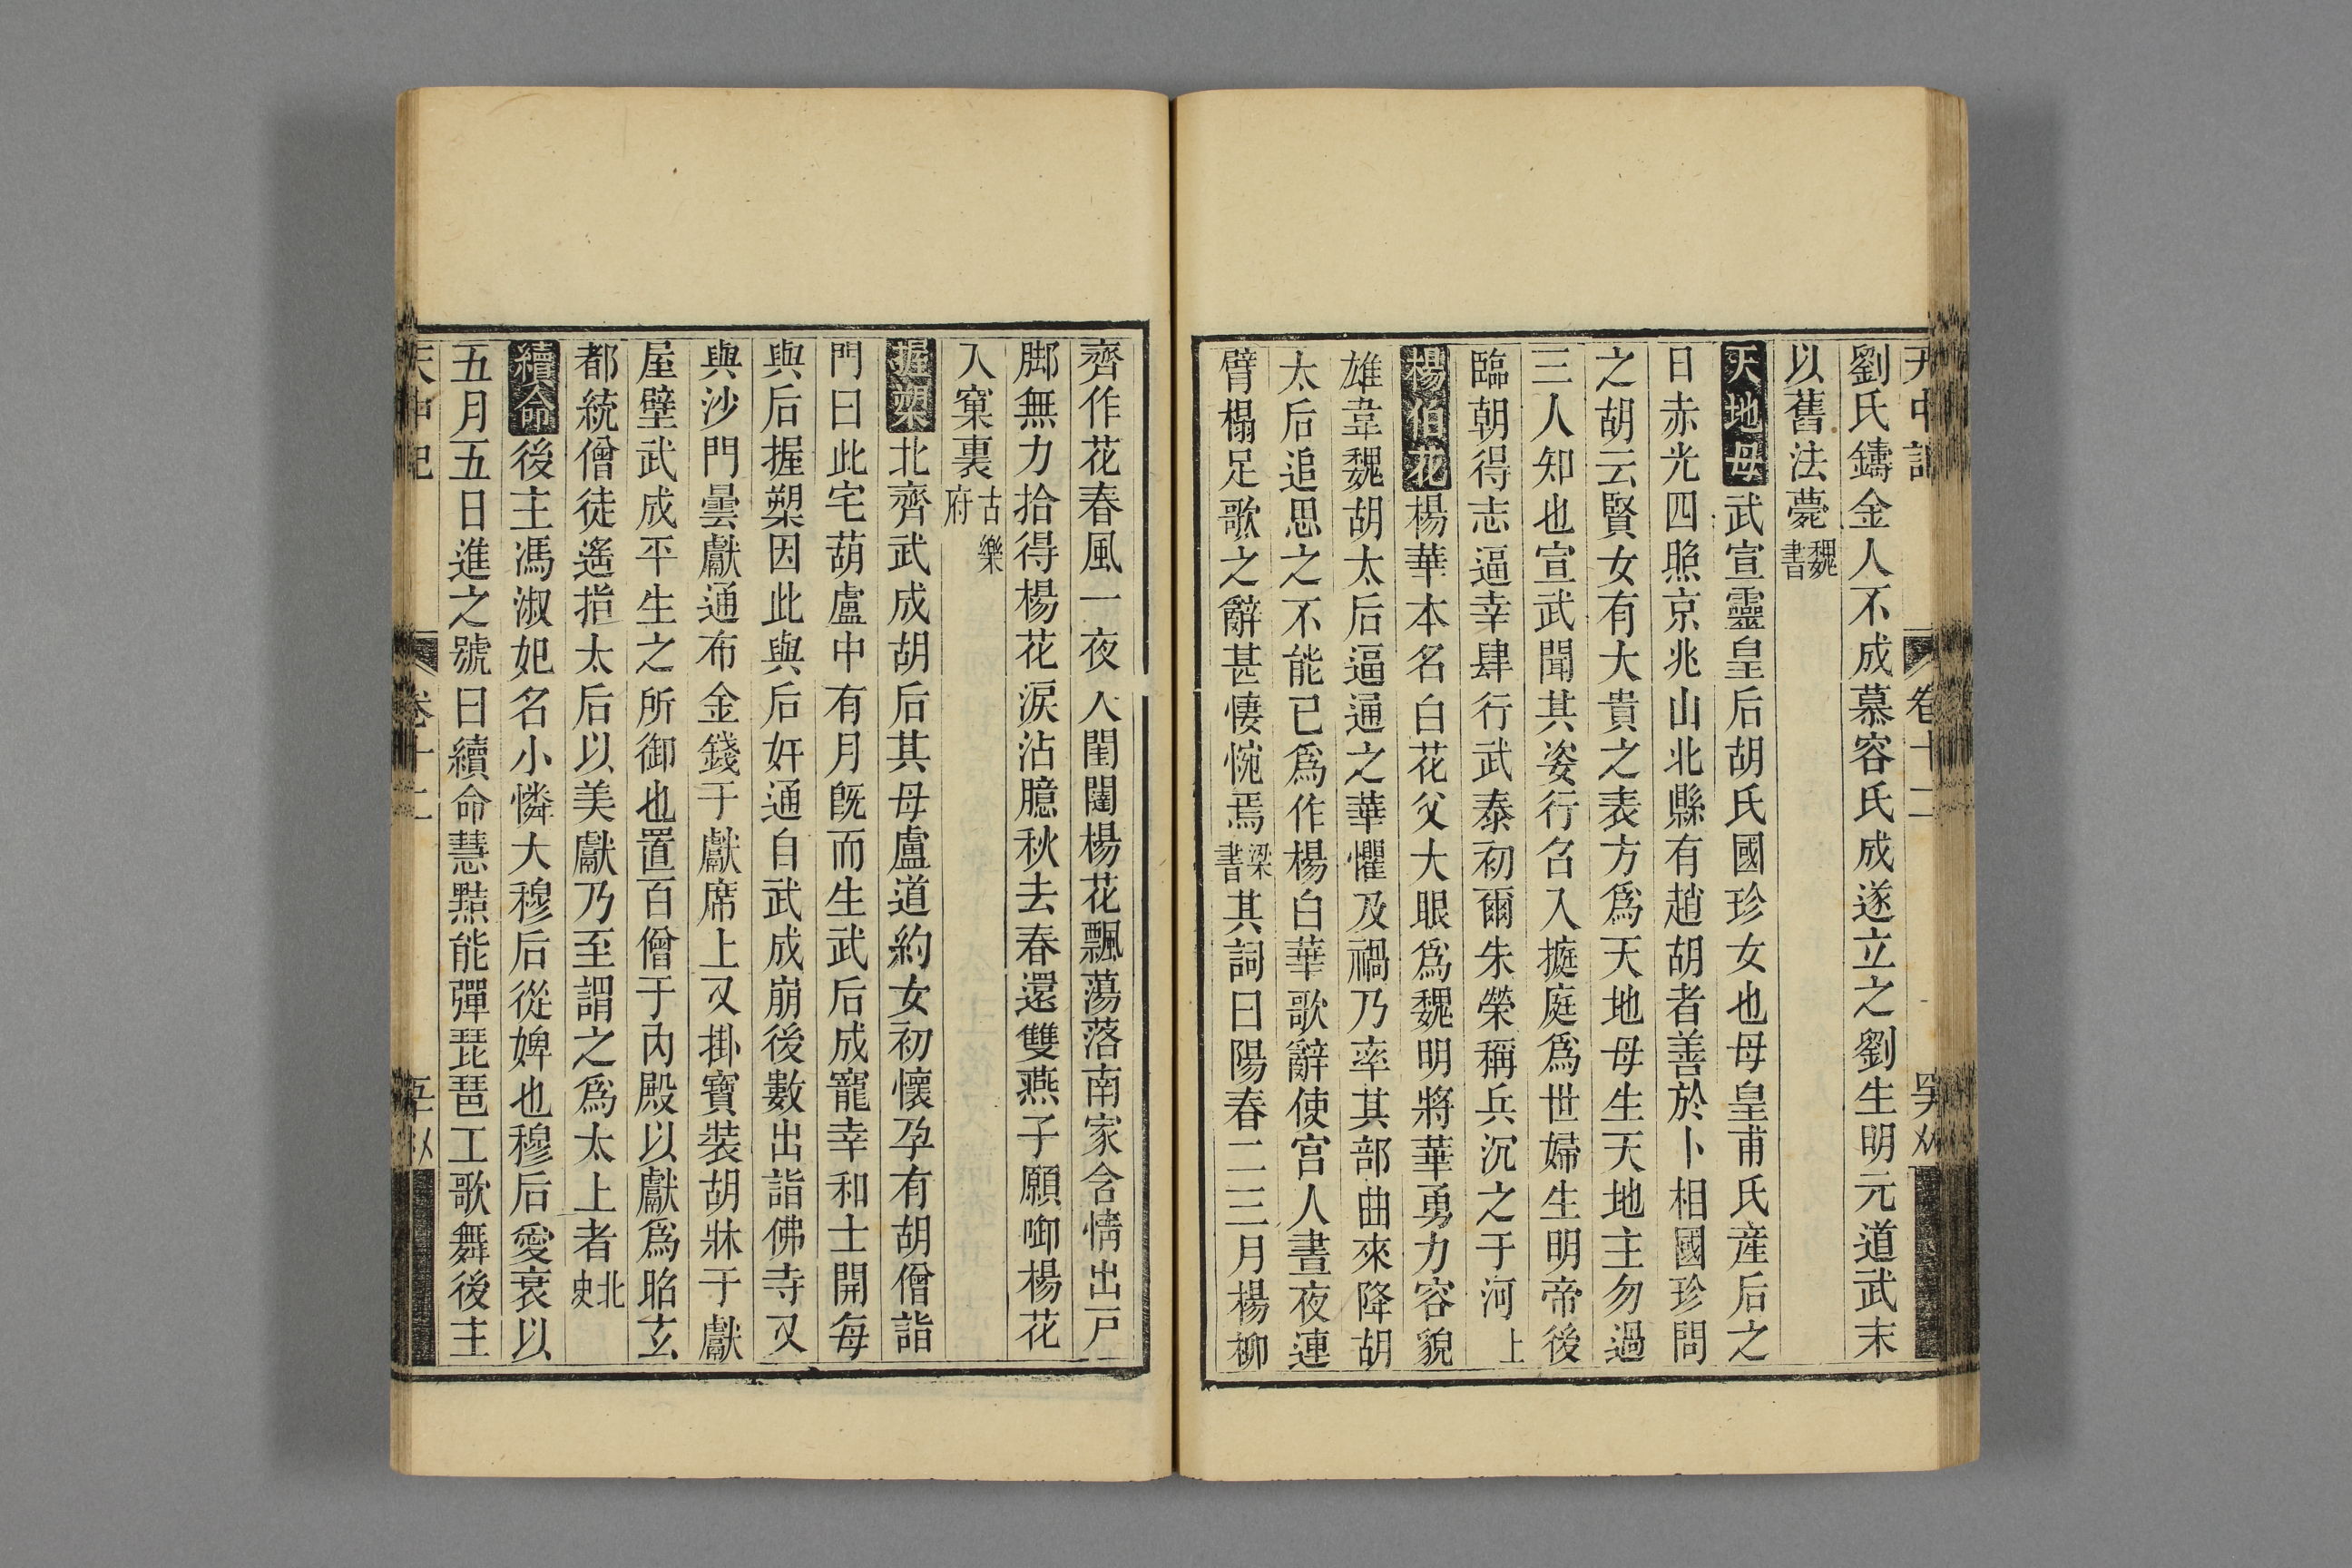 劉氏鑄金人不成慕容氏成遂立之劉生明元道武末
以舊法薨魏書
天地母武宣靈皇后胡氏國珍女也母皇甫氏產后之
日赤光四照京兆山北縣有趙胡者善於卜相國珍問
之胡云賢女有大貴之表方爲天地母生天地主勿過
三人知也宣武聞其姿行召入掖庭爲世婦生明帝後
臨朝得志逼幸肆行武泰初爾朱榮稱兵沉之于河上
楊伯花楊華本名白花父大眼爲魏明將華勇力容貌
雄韋魏胡太后逼通之華懼及禍乃率其部曲來降胡
太后追思之不能已爲作楊白華歌辭使宮人晝夜連
臂榻足歌之辭甚悽惋焉梁書其詞曰陽春二三月楊柳
齊作花春風一夜入閨闥楊花飄蕩落南家含情出戸
脚無力拾得楊花淚沾臆秋去春還雙燕子願啣楊花
入窠裏古樂府
握槊北齊武成胡后其母盧道約女初懷孕有胡僧詣
門曰此宅葫盧中有月旣而生武后成寵幸和士開每
與后握槊因此與后奸通自武成崩後數出詣佛寺又
與沙門曇獻通布金錢于獻席上又掛寶裝胡牀于獻
屋壁武成平生之所御也置百僧于內殿以獻爲昭玄
都統僧徒遙指太后以美獻乃至謂之爲太上者北史
續命後主馮淑妃名小憐大穆后從婢也穆后愛衰以
五月五日進之號曰續命慧黠能彈琵琶工歌舞後主
天中記 卷十二